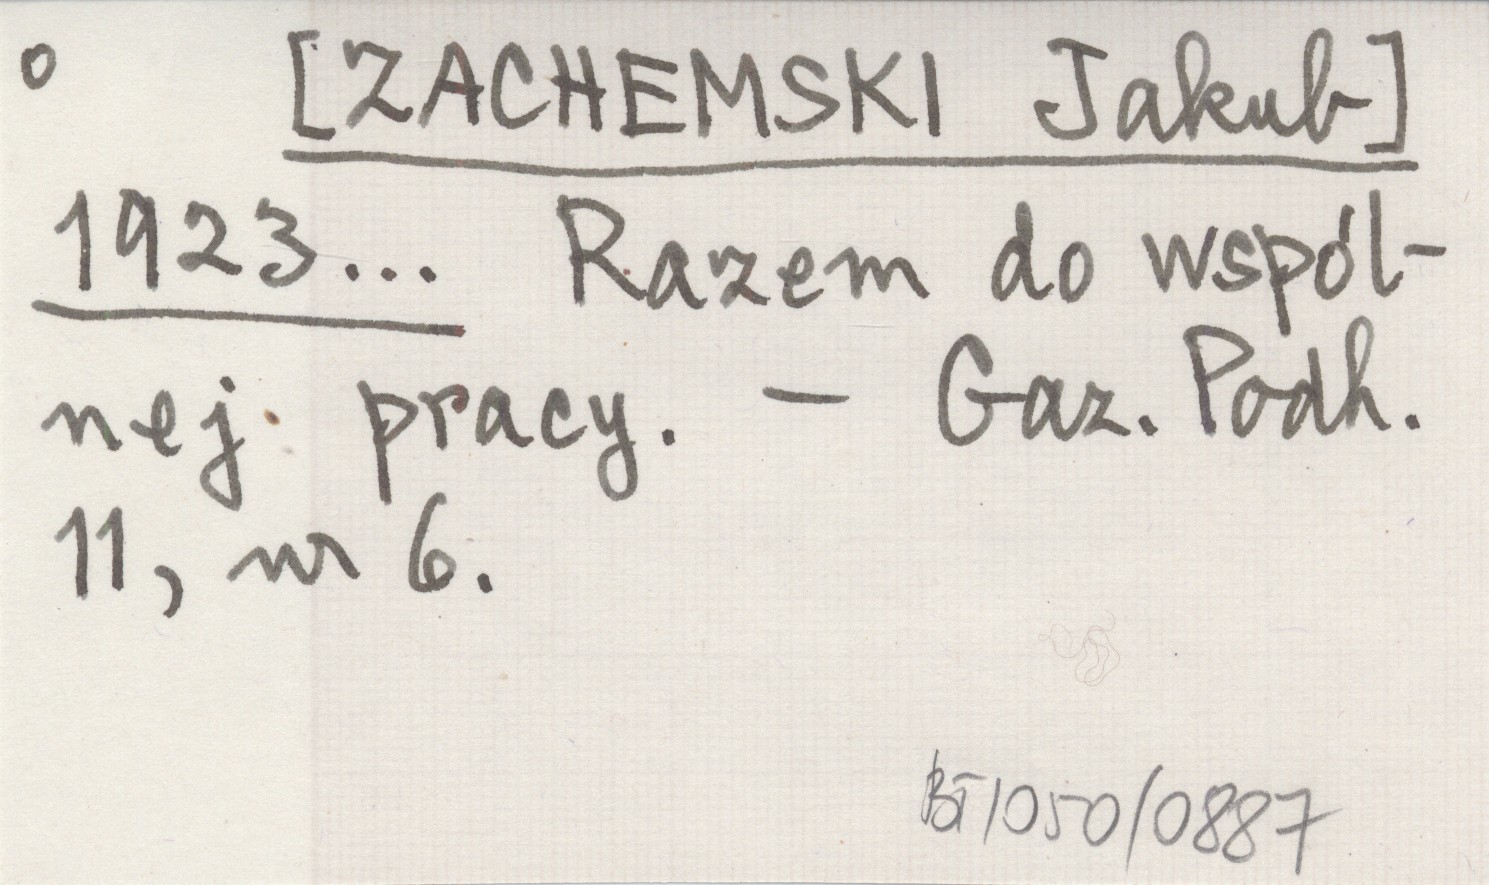 o [ZACHEMSKI Jakub]
1923... Razem do wspól-
nej pracy. — Gaz. Podh.
11, nr 6.
BT/050/0887